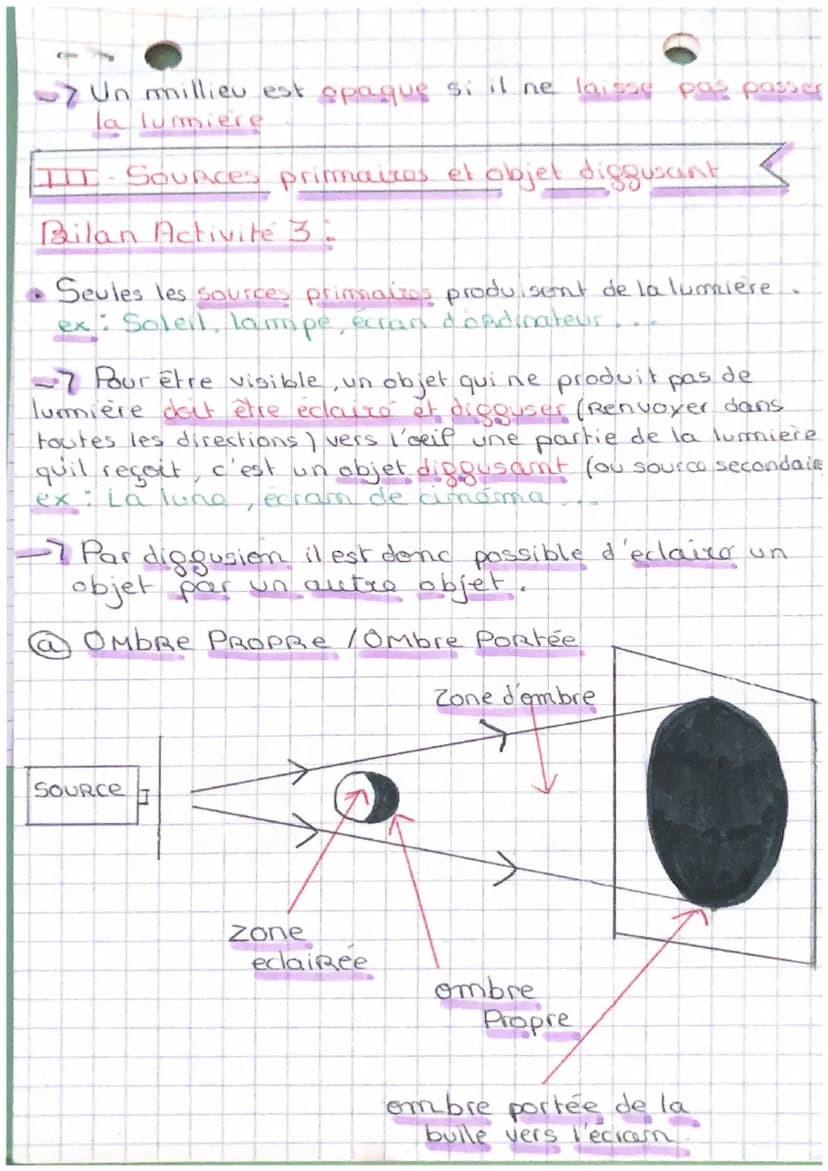 → Un millieu est opaque si il ne laisse pas passer
la lumière
III - Sources primaires et objet diffusant
Bilan Activité 3 :
• Seules les sources primaires produisent de la lumière.
ex : Soleil, lampe, écran d'ordinateur...
→ Pour être visible, un objet qui ne produit pas de
lumière doit être éclairé et diffuser (Renvoyer dans
toutes les directions) vers l'oeil une partie de la lumiere
qu'il reçoit, c'est un objet diffusant (ou source secondaire
ex : La lune, écran de cinéma...
→ Par diffusion il est donc possible d'eclairer un
objet par un autre objet.
ⓐ OMBRE PROPRE / OMBRE PORTÉE
Zone d'ombre
SOURCE
zone
eclairée
ombre
Propre
ombre portée de la
bulle vers l'écran.